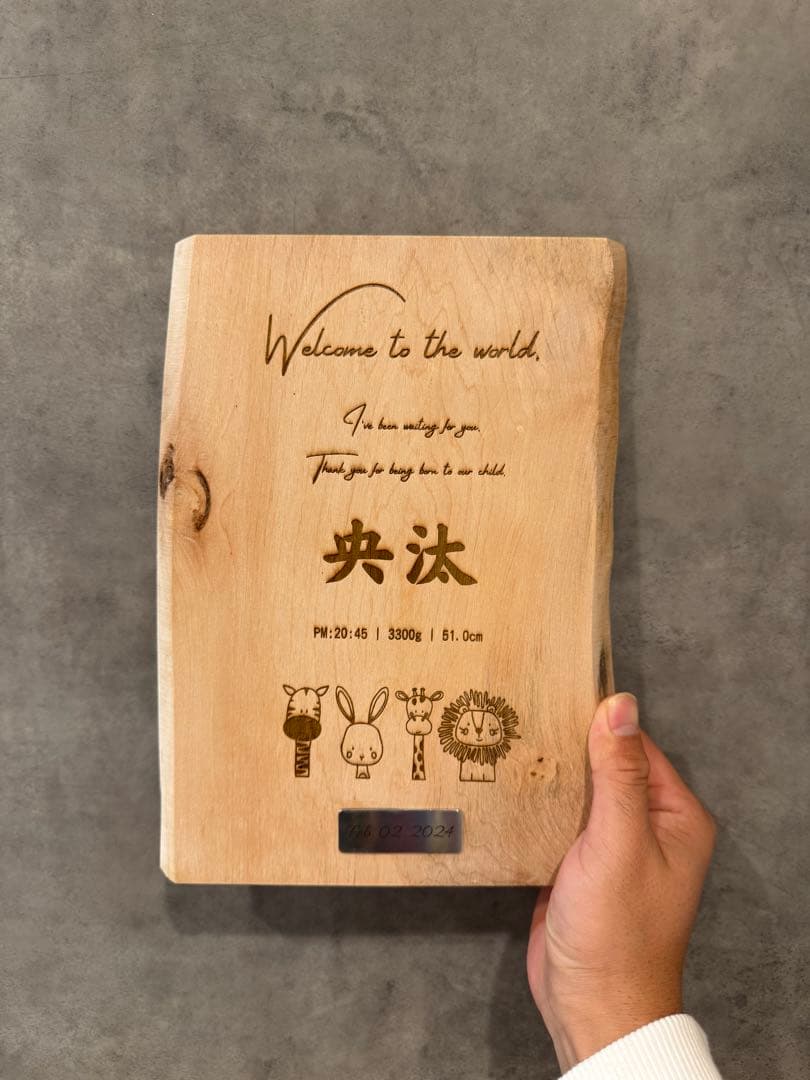 Welcome to the world.
I've been waiting for you.
Thank you for being born to our child.
央汰
PM:20:45 | 3300g | 51.0cm
Feb 02 2024